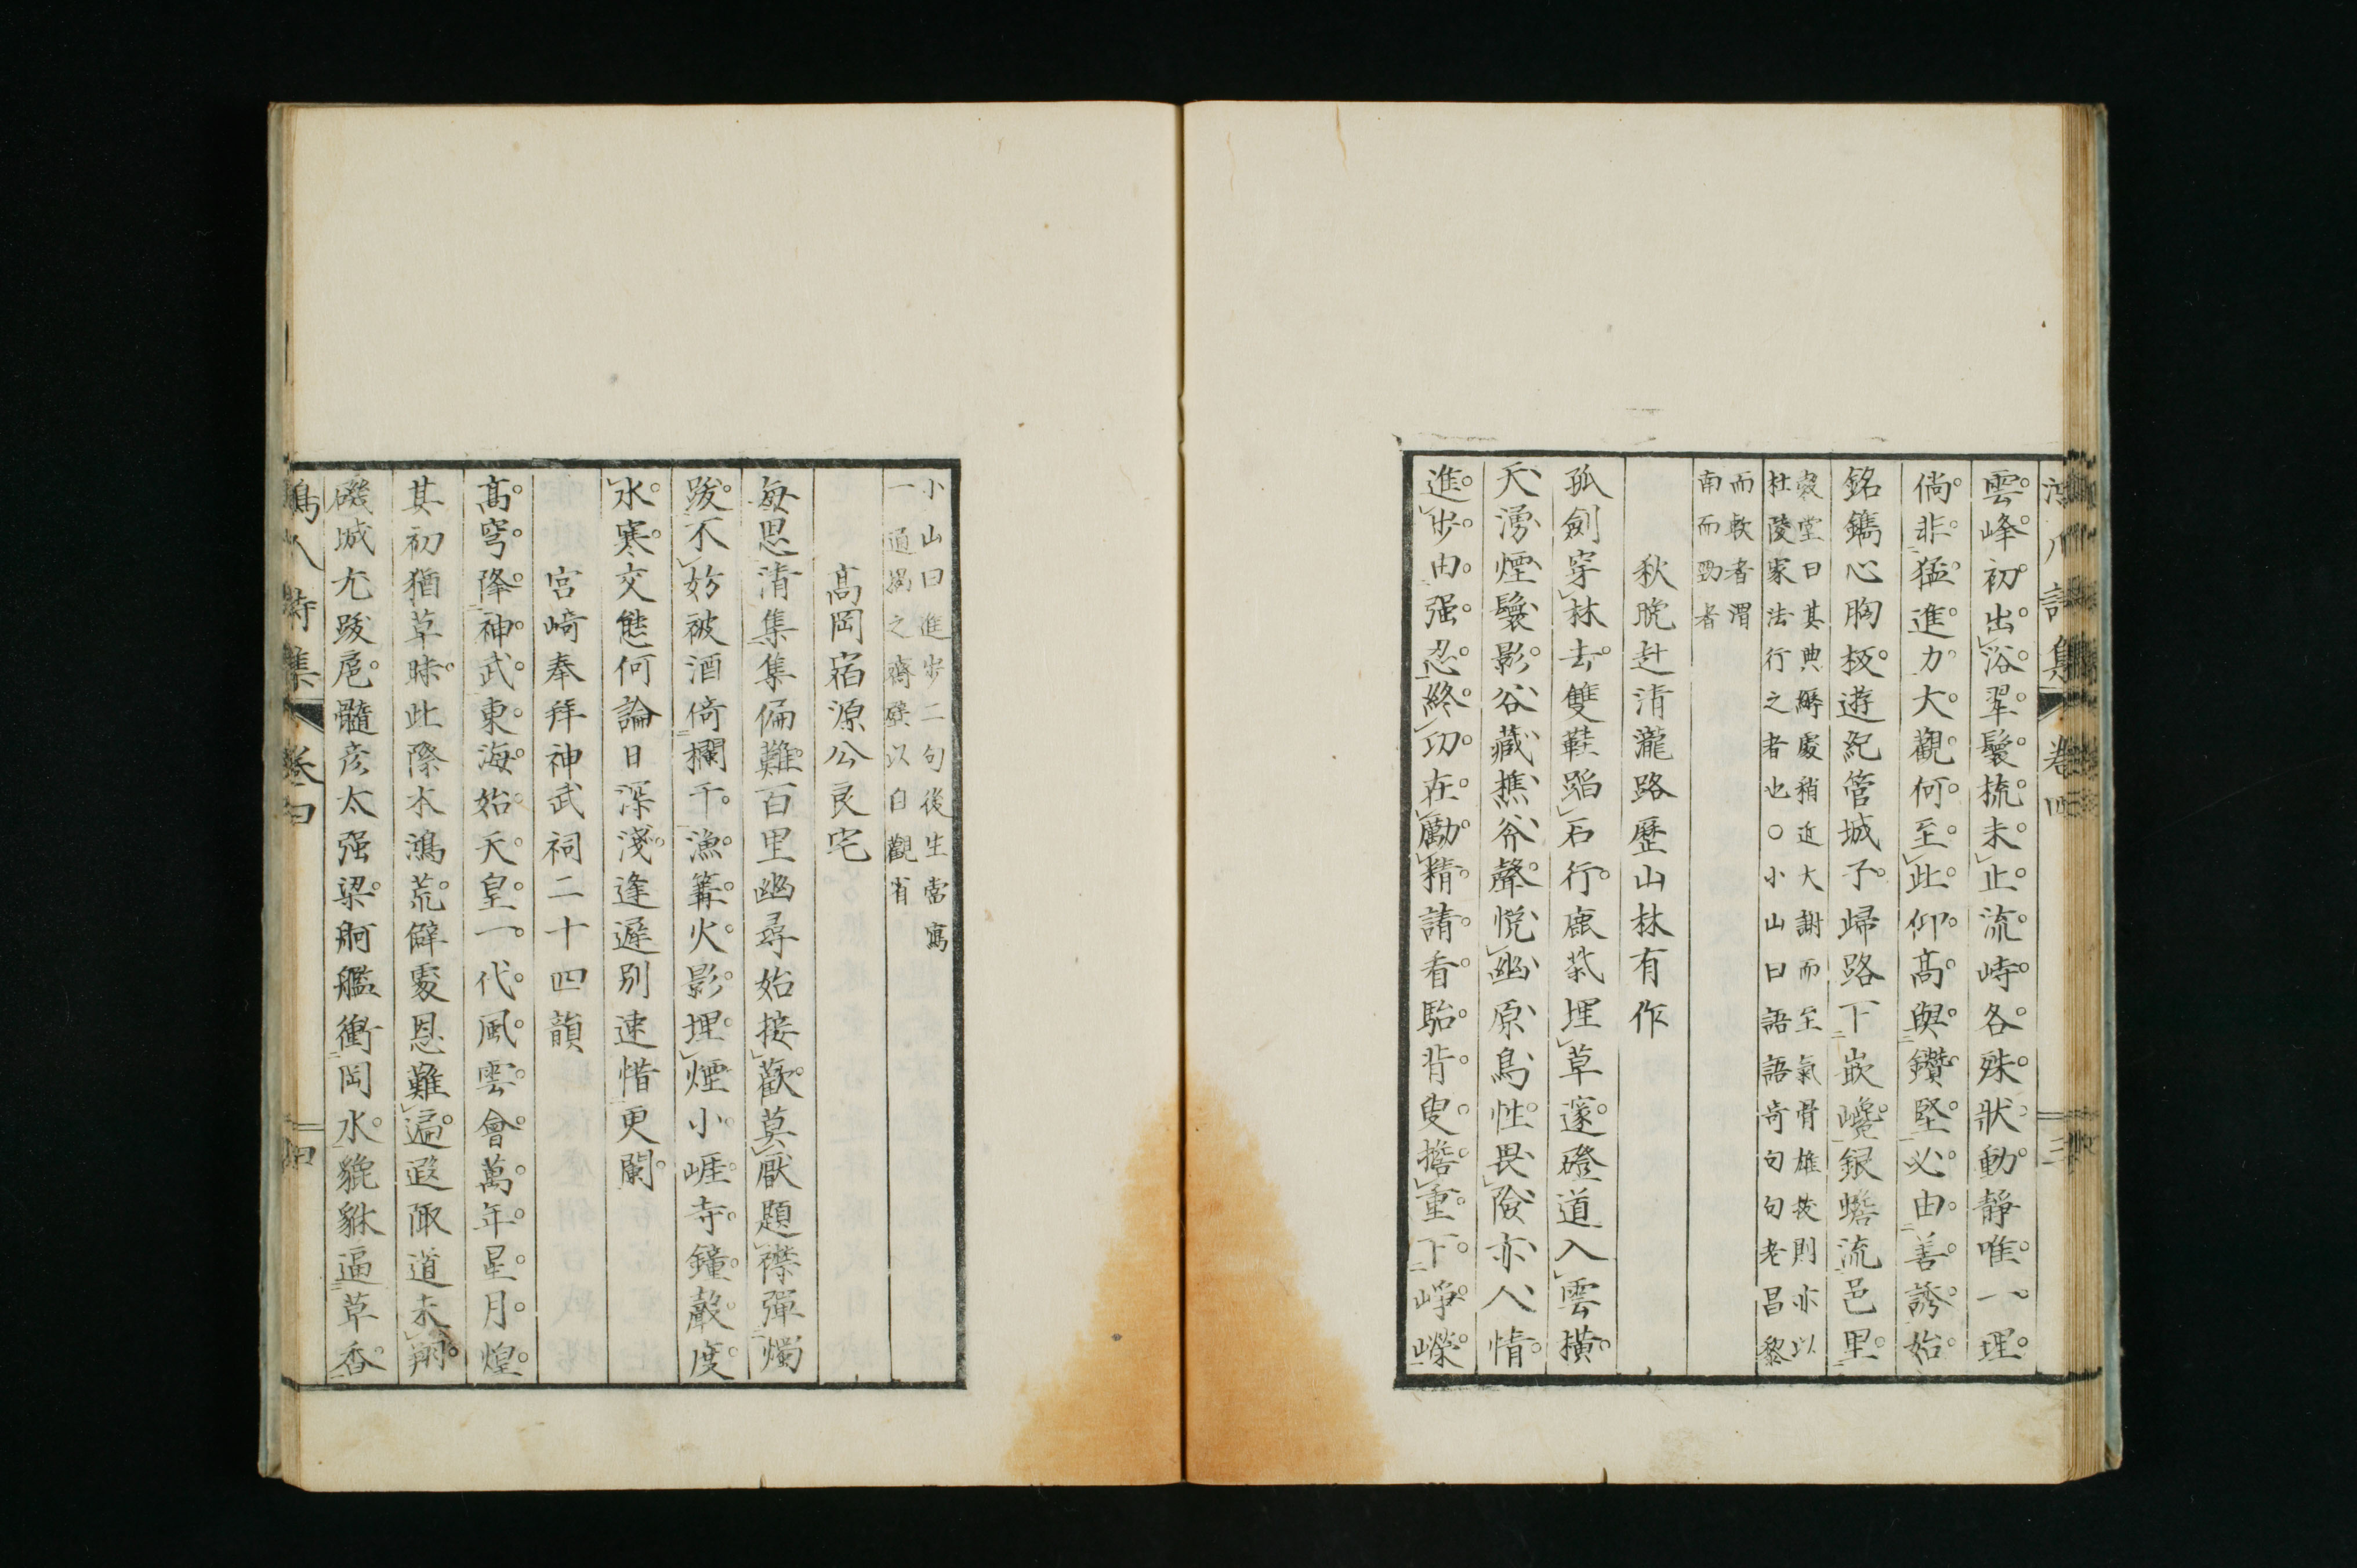 詩集 卷四 三
雲峰初出浴翠鬟梳未止流峙各殊狀動靜唯一理
倘非猛進力大觀何至此仰高與鑽堅必由善誘始
銘鐫心胸板遊紀管城子歸路下嵌巉銀蟾流邑里
穀堂曰其典縟處稍近大謝而至氣骨雄拔則亦以
杜陵家法行之者也○小山曰語語奇句句老昌黎
而軟者渭
南而勁者
秋晚赴清瀧路歷山林有作
孤劍穿林去雙鞋蹈石行鹿柴埋草邃磴道入雲橫
天湧煙鬟影谷藏樵斧聲悅幽原鳥性畏險亦人情
進步由强忍終功在勵精請看駘背叟擔重下崢嶸
小山曰進步二句後生當寫
一通揭之齋壁以自觀省
髙岡宿源公良宅
每思清集集偏難百里幽尋始接歡莫厭題襟彈燭
跋不妨被酒倚欄干漁篝火影埋煙小崕寺鐘聲度
水寒交態何論日深淺逢遲別速惜更闌
宮崎奉拜神武祠二十四韻
髙穹降神武東海始天皇一代風雲會萬年星月煌
其初猶草昧此際本鴻荒僻處恩難遍遐陬道未翔
磯城尤跋扈髓彥太强梁舸艦衝罔水貔貅逼草香
人詩集 卷四 四